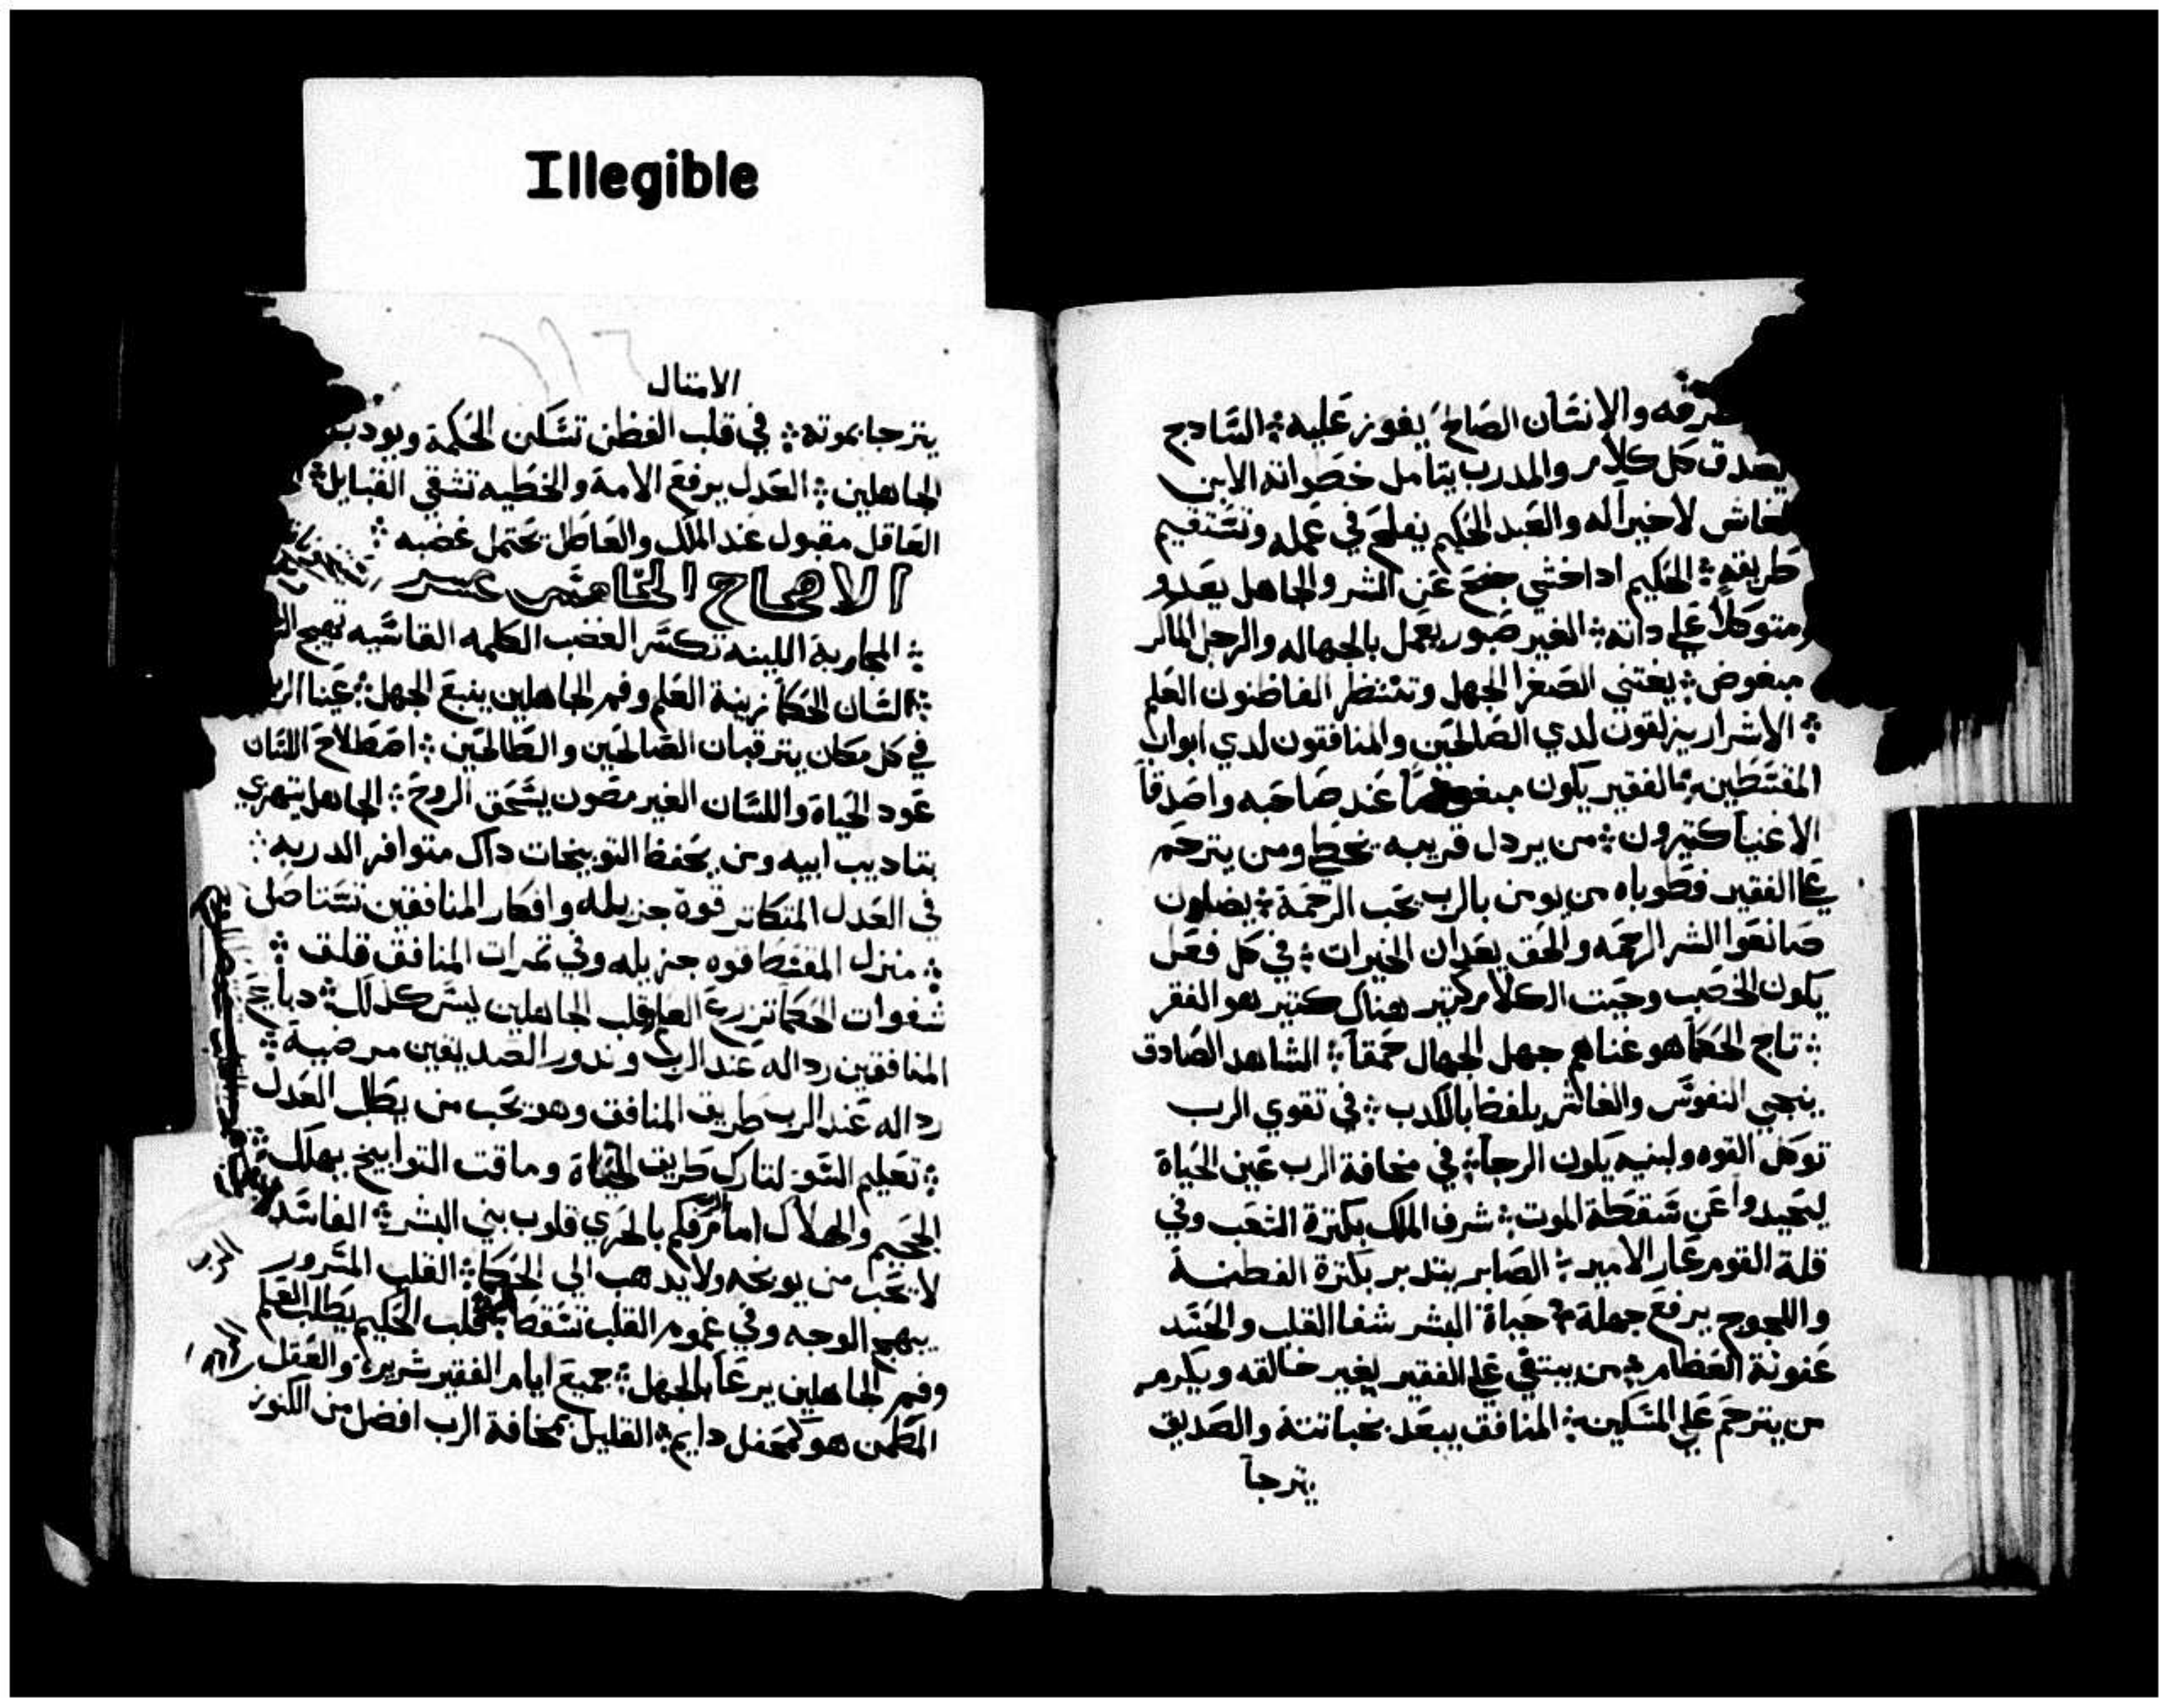 Illegible
والانسان الصالح يفوز عليه ❖ السادج
يصدق كل كلام والمدرب يتامل خطواته الابن
الغاش لا خير له والعبد الحكيم يفلح في عمله وتستقيم
طريقه ❖ الحكيم ادا خشي جنح عن الشر والجاهل يعدو
ومتوكلا علي داته ❖ الغير صبور يعمل بالجهاله والرجل الماكر
مبغوض ❖ يقتني الصغرا الجهل وتنتظر الفاطنون العلم
❖ الاشرار يزلقون لدي الصالحين والمنافقون لدي ابواب
المقسطين ❖ الفقير يكون عند صاحبه واصدقا
الاغنيا كتيرون ❖ من يردل قريبه يخطي ومن يترحم
علي الفقير فطوباه من يومن بالرب يحب الرحمة ❖ يضلون
صانعوا الشر الرحمه والحق يعدان الخيرات ❖ في كل فعل
يكون الخصب وحيت الكلام كتير هناك كتير هو الفقر
❖ تاج الحكما هو غناهم جهل الجهال حمقا ❖ الشاهد الصادق
ينجي النفوس والغاش يلفظ بالكدب ❖ في تقوي الرب
توكل القوه ولبنيه يكون الرجا ❖ في مخافة الرب عين الحياة
ليحيدوا عن سقطة الموت ❖ شرف الملك بكترة الشعب وفي
قلة القوم عار الامير ❖ الصابر يتدبر بكترة الفطنة
واللجوج يرفع جهلة ❖ حياة البشر شفا القلب والحسد
عفونة العظام ❖ من يبتقي علي الفقير يغير خالقه ويكرمه
من يترحم علي المسكين ❖ المنافق يبعد بخباتته والصديق
يترجا
الامتال
يترجا بموته ❖ في قلب الفطن تسكن الحكمة ويودب
الجاهلين ❖ العدل يرفع الامة والخطيه تشقي القبايل ❖
العاقل مقبول عند الملك والعاطل يحتمل غضبه ❖
الاصحاح الخامس عشر
❖ المجاوبة اللينه تكسر الغضب الكلمه القاسيه تهيج
❖ لسان الحكما زينة العلم وفم الجاهلين ينبع الجهل ❖ عينا الرب
في كل مكان يترقبان الصالحين والطالحين ❖ اصطلاح اللسان
عود الحياة واللسان الغير مصون يسحق الروح ❖ الجاهل يتهزي
بتاديب ابيه ومن يحفظ التوبيخات داك متوافر الدربه ❖
في العدل المتكاتر قوة جزيله وافكار المنافقين تستاصل
❖ منزل المقسط قوه جزيله وفي تمرات المنافق قلق ❖
شفوات الحكما تزرع العلم قلب الجاهلين ليس كدلك ❖ دبايح
المنافقين رداله عند الرب وندور الصديقين مرضية ❖
رداله عند الرب طريق المنافق وهو يحب من يطلب العدل
❖ تعليم السو لتارك طريق الحياة وماقت التوابيخ يهلك ❖
الجحيم والهلاك امام الرب فكم بالحري قلوب بني البشر ❖ الفاسد
لا يحب من يوبخه ولا يدهب الي الحكما ❖ القلب المسرور
يبهج الوجه وفي غموم القلب تسقط قلب الحكيم يطلب العلم
وفم الجاهلين يرعا بالجهل ❖ جميع ايام الفقير شريرة والعقل
المطمن هو كمحفل دايم ❖ القليل بمخافة الرب افضل من الكنوز